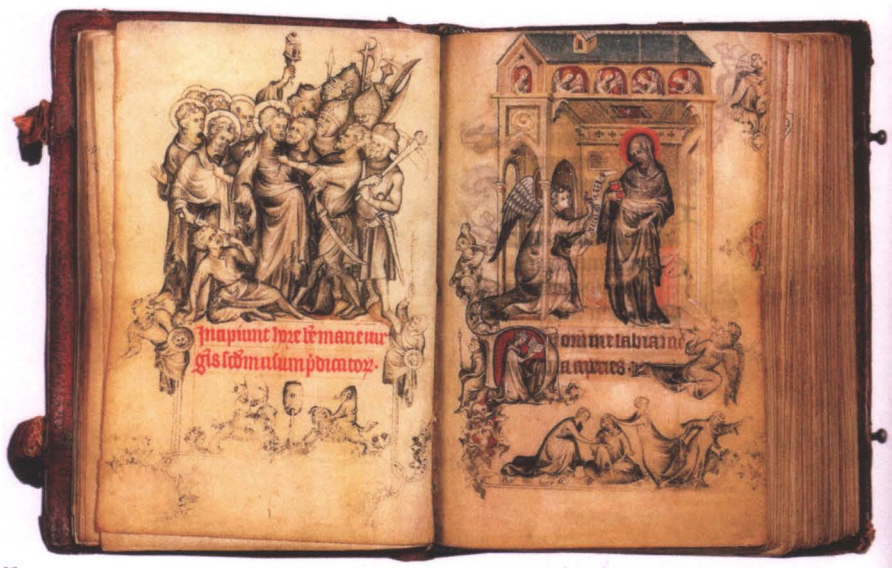 Incipiunt hore bē marie uir
gīs scdm usum p̄dicatoꝝ.
Domine labia me
a aperies